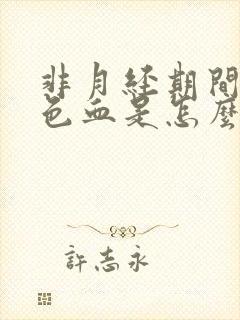 非月経期間
色血是怎麼
許志永